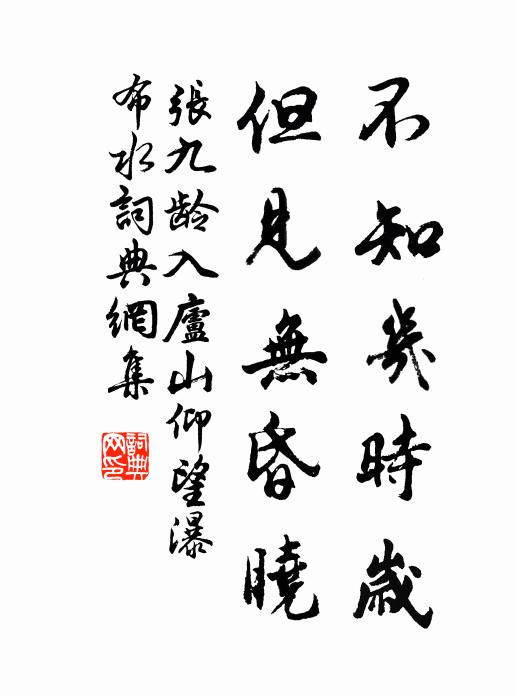 不知幾時歲
但見無昏曉
張九龄入廬山仰望瀑
布水詞典網集
詞典
网印